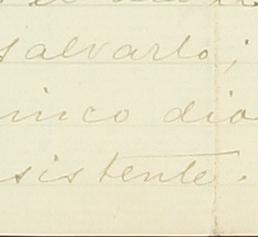 salvarlo;
inco dia
sistente.